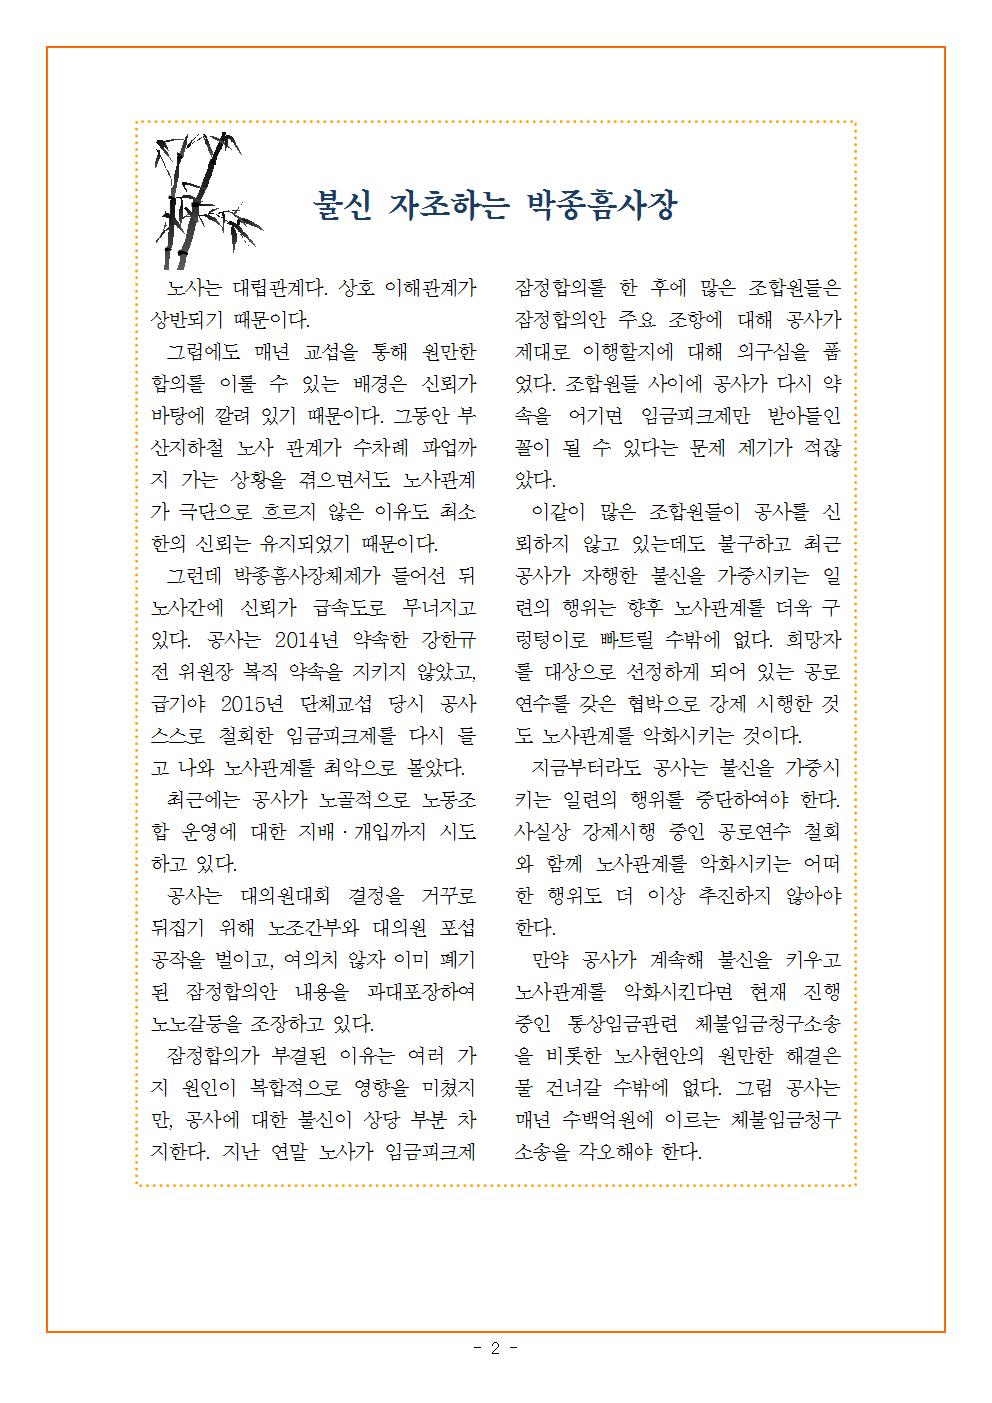 불신 자초하는 박종흠사장
노사는 대립관계다. 상호 이해관계가
상반되기 때문이다.
그럼에도 매년 교섭을 통해 원만한
합의를 이룰 수 있는 배경은 신뢰가
바탕에 깔려 있기 때문이다. 그동안 부
산지하철 노사 관계가 수차례 파업까
지 가는 상황을 겪으면서도 노사관계
가 극단으로 흐르지 않은 이유도 최소
한의 신뢰는 유지되었기 때문이다.
그런데 박종흠사장체계가 들어선 뒤
노사간에 신뢰가 급속도로 무너지고
있다. 공사는 2014년 약속한 강한규
전 위원장 복직 약속을 지키지 않았고,
급기야 2015년 단체교섭 당시 공사
스스로 철회한 임금피크제를 다시 들
고 나와 노사관계를 최악으로 몰았다.
최근에는 공사가 노골적으로 노동조
합 운영에 대한 지배·개입까지 시도
하고 있다.
공사는 대의원대회 결정을 거꾸로
뒤집기 위해 노조간부와 대의원 포섭
공작을 벌이고, 여의치 않자 이미 폐기
된 잠정합의안 내용을 과대포장하여
노노갈등을 조장하고 있다.
잠정합의가 부결된 이유는 여러 가
지 원인이 복합적으로 영향을 미쳤지
만, 공사에 대한 불신이 상당 부분 차
지한다. 지난 연말 노사가 임금피크제
잠정합의를 한 후에 많은 조합원들은
잠정합의안 주요 조항에 대해 공사가
제대로 이행할지에 대해 의구심을 품
었다. 조합원들 사이에 공사가 다시 약
속을 어기면 임금피크제만 받아들인
꼴이 될 수 있다는 문제 제기가 적잖
았다.
이같이 많은 조합원들이 공사를 신
뢰하지 않고 있는데도 불구하고 최근
공사가 자행한 불신을 가중시키는 일
련의 행위는 향후 노사관계를 더욱 구
렁텅이로 빠트릴 수밖에 없다. 희망자
를 대상으로 선정하게 되어 있는 공로
연수를 갖은 협박으로 강제 시행한 것
도 노사관계를 악화시키는 것이다.
지금부터라도 공사는 불신을 가중시
키는 일련의 행위를 중단하여야 한다.
사실상 강제시행 중인 공로연수 철회
와 함께 노사관계를 악화시키는 어떠
한 행위도 더 이상 추진하지 않아야
한다.
만약 공사가 계속해 불신을 키우고
노사관계를 악화시킨다면 현재 진행
중인 통상임금관련 체불임금청구소송
을 비롯한 노사현안의 원만한 해결은
물 건너갈 수밖에 없다. 그럼 공사는
매년 수백억원에 이르는 체불임금청구
소송을 각오해야 한다.
- 2 -